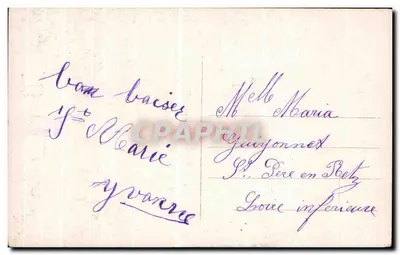 bon baiser
Ste Marie
Yvonne
Melle Maria
Guyonnet
St Père en Retz
Loire inférieure
CPARAMA